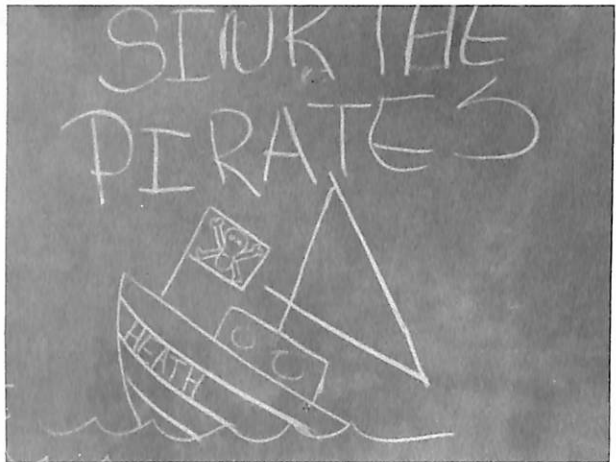 SINK THE
PIRATES
HEATH